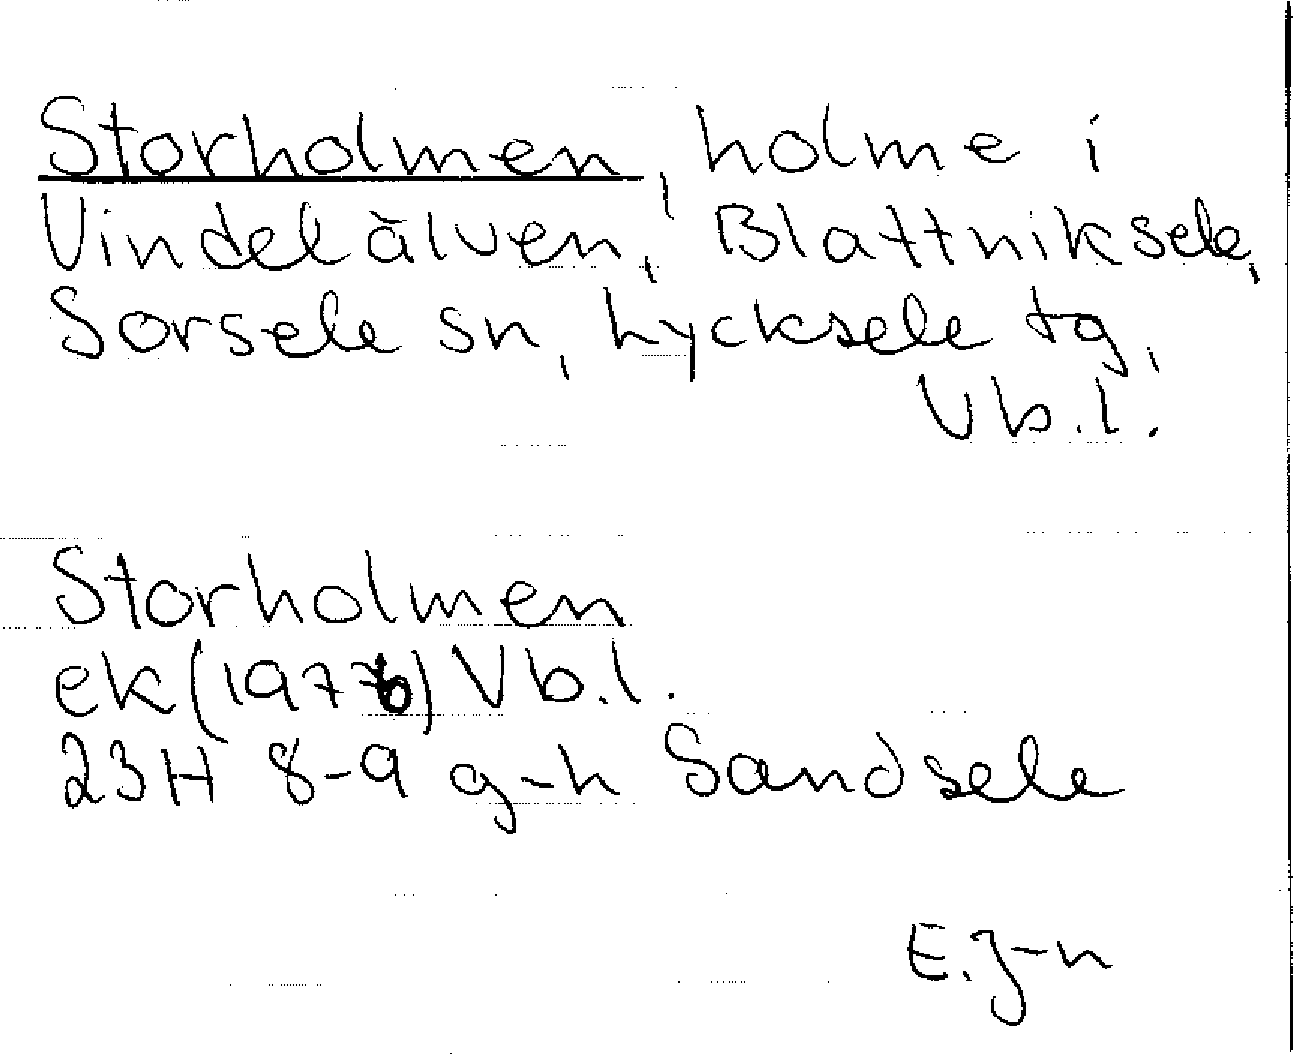 Storholmen, holme i
Vindelälven, Blattniksele,
Sorsele sn, Lycksele tg,
Vb.l.
Storholmen
ek (1976) Vb.l.
23H 8-9 g-h Sandsele
E.J-n